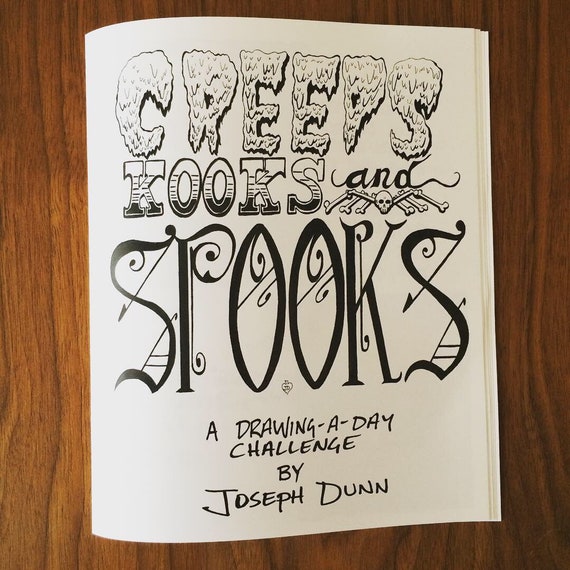 CREEPS
KOOKS and
SPOOKS
A DRAWING-A-DAY
CHALLENGE
BY
JOSEPH DUNN